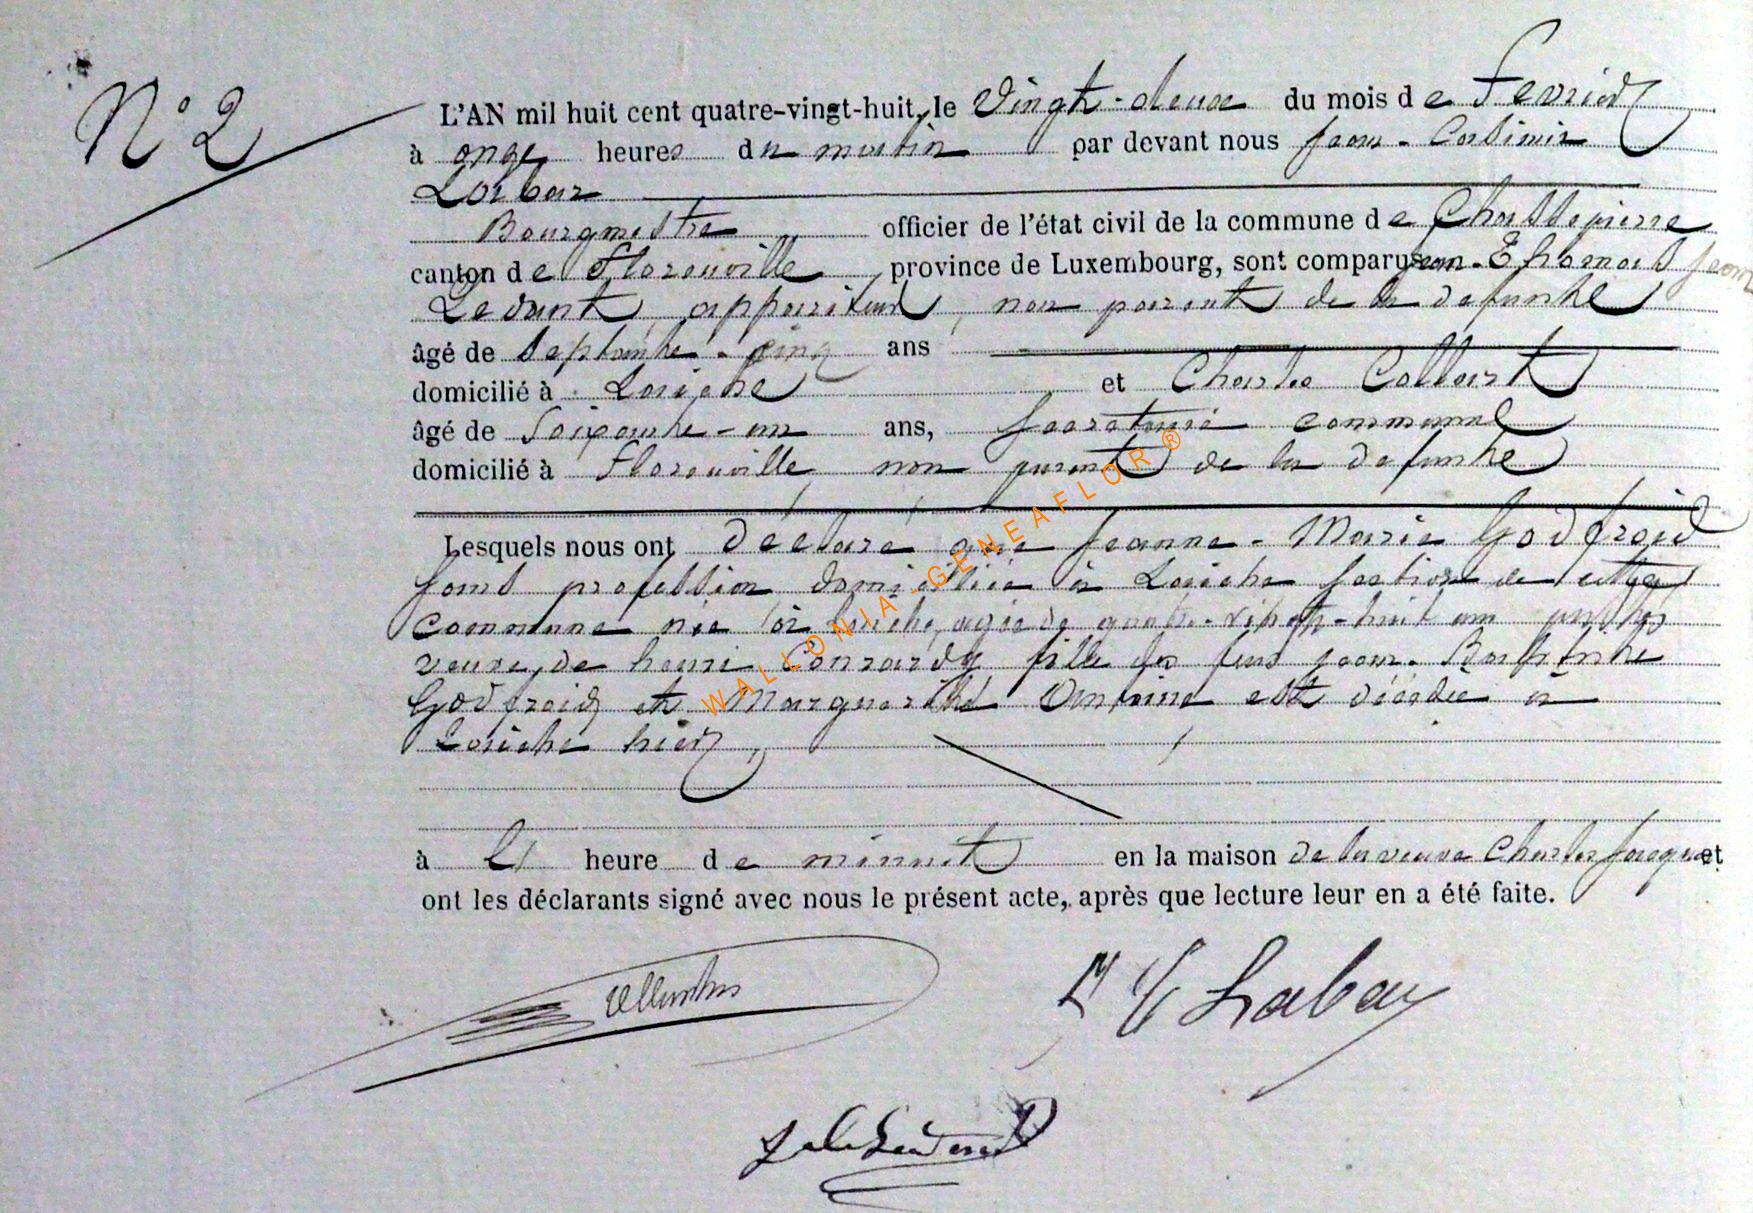 N° 2
L'AN mil huit cent quatre-vingt-huit, le Vingt-deux du mois de Fevrier
à onze heures du matin par devant nous Jean-Casimir
Labar
Bourgmestre officier de l'état civil de la commune de Chassepierre
canton de Florenville province de Luxembourg, sont comparus Jean-Thomas Jean
Ledant, appariteur, non parent de la defunte
âgé de Septante-cinq ans
domicilié à Laiche et Charles Collart
âgé de Soixante-un ans, Secretaire communal
domicilié à Florenville non parent de la defunte
Lesquels nous ont déclaré que Jeanne-Marie Godfroid
sans profession domiciliée à Laiche section de cette
commune née à Laiche, agée de quatre-vingt-huit ans
veuve de henri Conrardy fille de feus Jean-Baptiste
Godfroid et Marguerite Antoine est décédée à
Laiche hier,
à heure de minuit en la maison de la veuve Charles Jacques et
ont les déclarants signé avec nous le présent acte, après que lecture leur en a été faite.
Labar
WALLONIA-GENEAFLOR ®